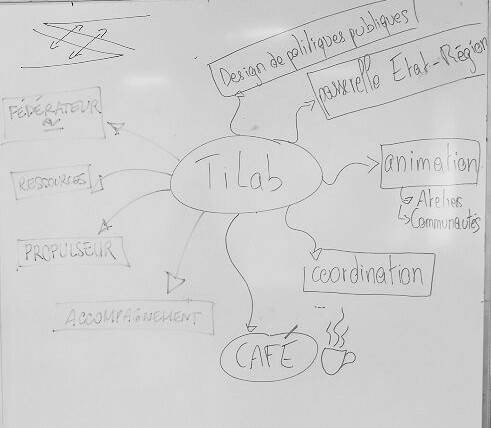 Design de politiques publiques!
passerelle Etat-Région
FÉDÉRATEUR
TiLab
animation
RESSOURCES
Ateliers
Communautés
PROPULSEUR
coordination
ACCOMPAGNEMENT
CAFÉ